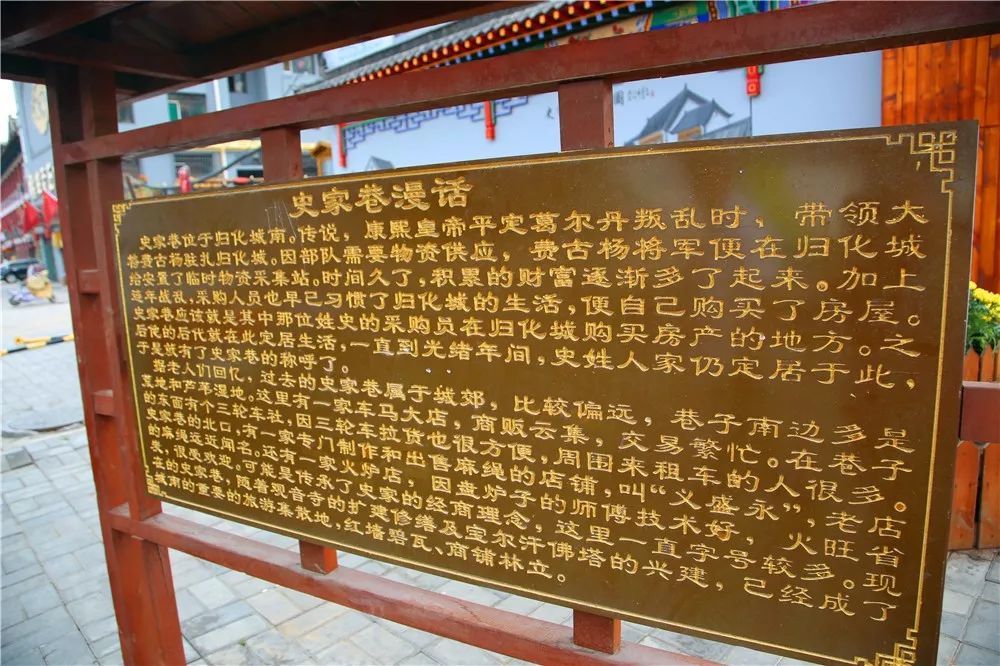 史家巷漫话
史家巷位于归化城南。传说，康熙皇帝平定葛尔丹叛乱时，带领大
将费古杨驻扎归化城。因部队需要物资供应，费古杨将军便在归化城
给安置了临时物资采集站。时间久了，积累的财富逐渐多了起来。加上
连年战乱，采购人员也早已习惯了归化城的生活，便自己购买了房屋。
史家巷应该就是其中那位姓史的采购员在归化城购买房产的地方。之
后的后代就在此定居生活，一直到光绪年间，史姓人家仍定居于此，
于是就有了史家巷的称呼了。
据老人们回忆，过去的史家巷属于城郊，比较偏远，巷子南边多是
荒地和芦苇湿地。这里有一家车马大店，商贩云集，交易繁忙。在巷子
的东面有个三轮车社，因三轮车拉货也很方便，周围来租车的人很多。
史家巷的北口，有一家专门制作和出售麻绳的店铺，叫“义盛永”，老店
的麻绳远近闻名。还有一家火炉店，因盘炉子的师傅技术好，火旺省
炭，很受欢迎。可能是传承了史家的经商理念，这里一直字号较多。现
在的史家巷，随着观音寺的扩建修缮及宝尔汗佛塔的兴建，已经成了
城南的重要的旅游集散地，红墙碧瓦、商铺林立。